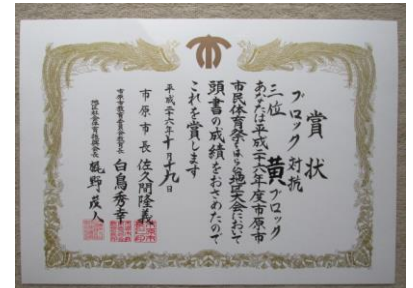 賞状
ブロック対抗
三位 黄ブロック
あなたは平成二十六年度市原市
市民体育祭地区大会において
頭書の成績をおさめたので
これを賞します
平成二十六年十月十九日
市原市長 佐久間隆義
市原市教育委員会教育長 白鳥秀幸
地区社会体育振興会長